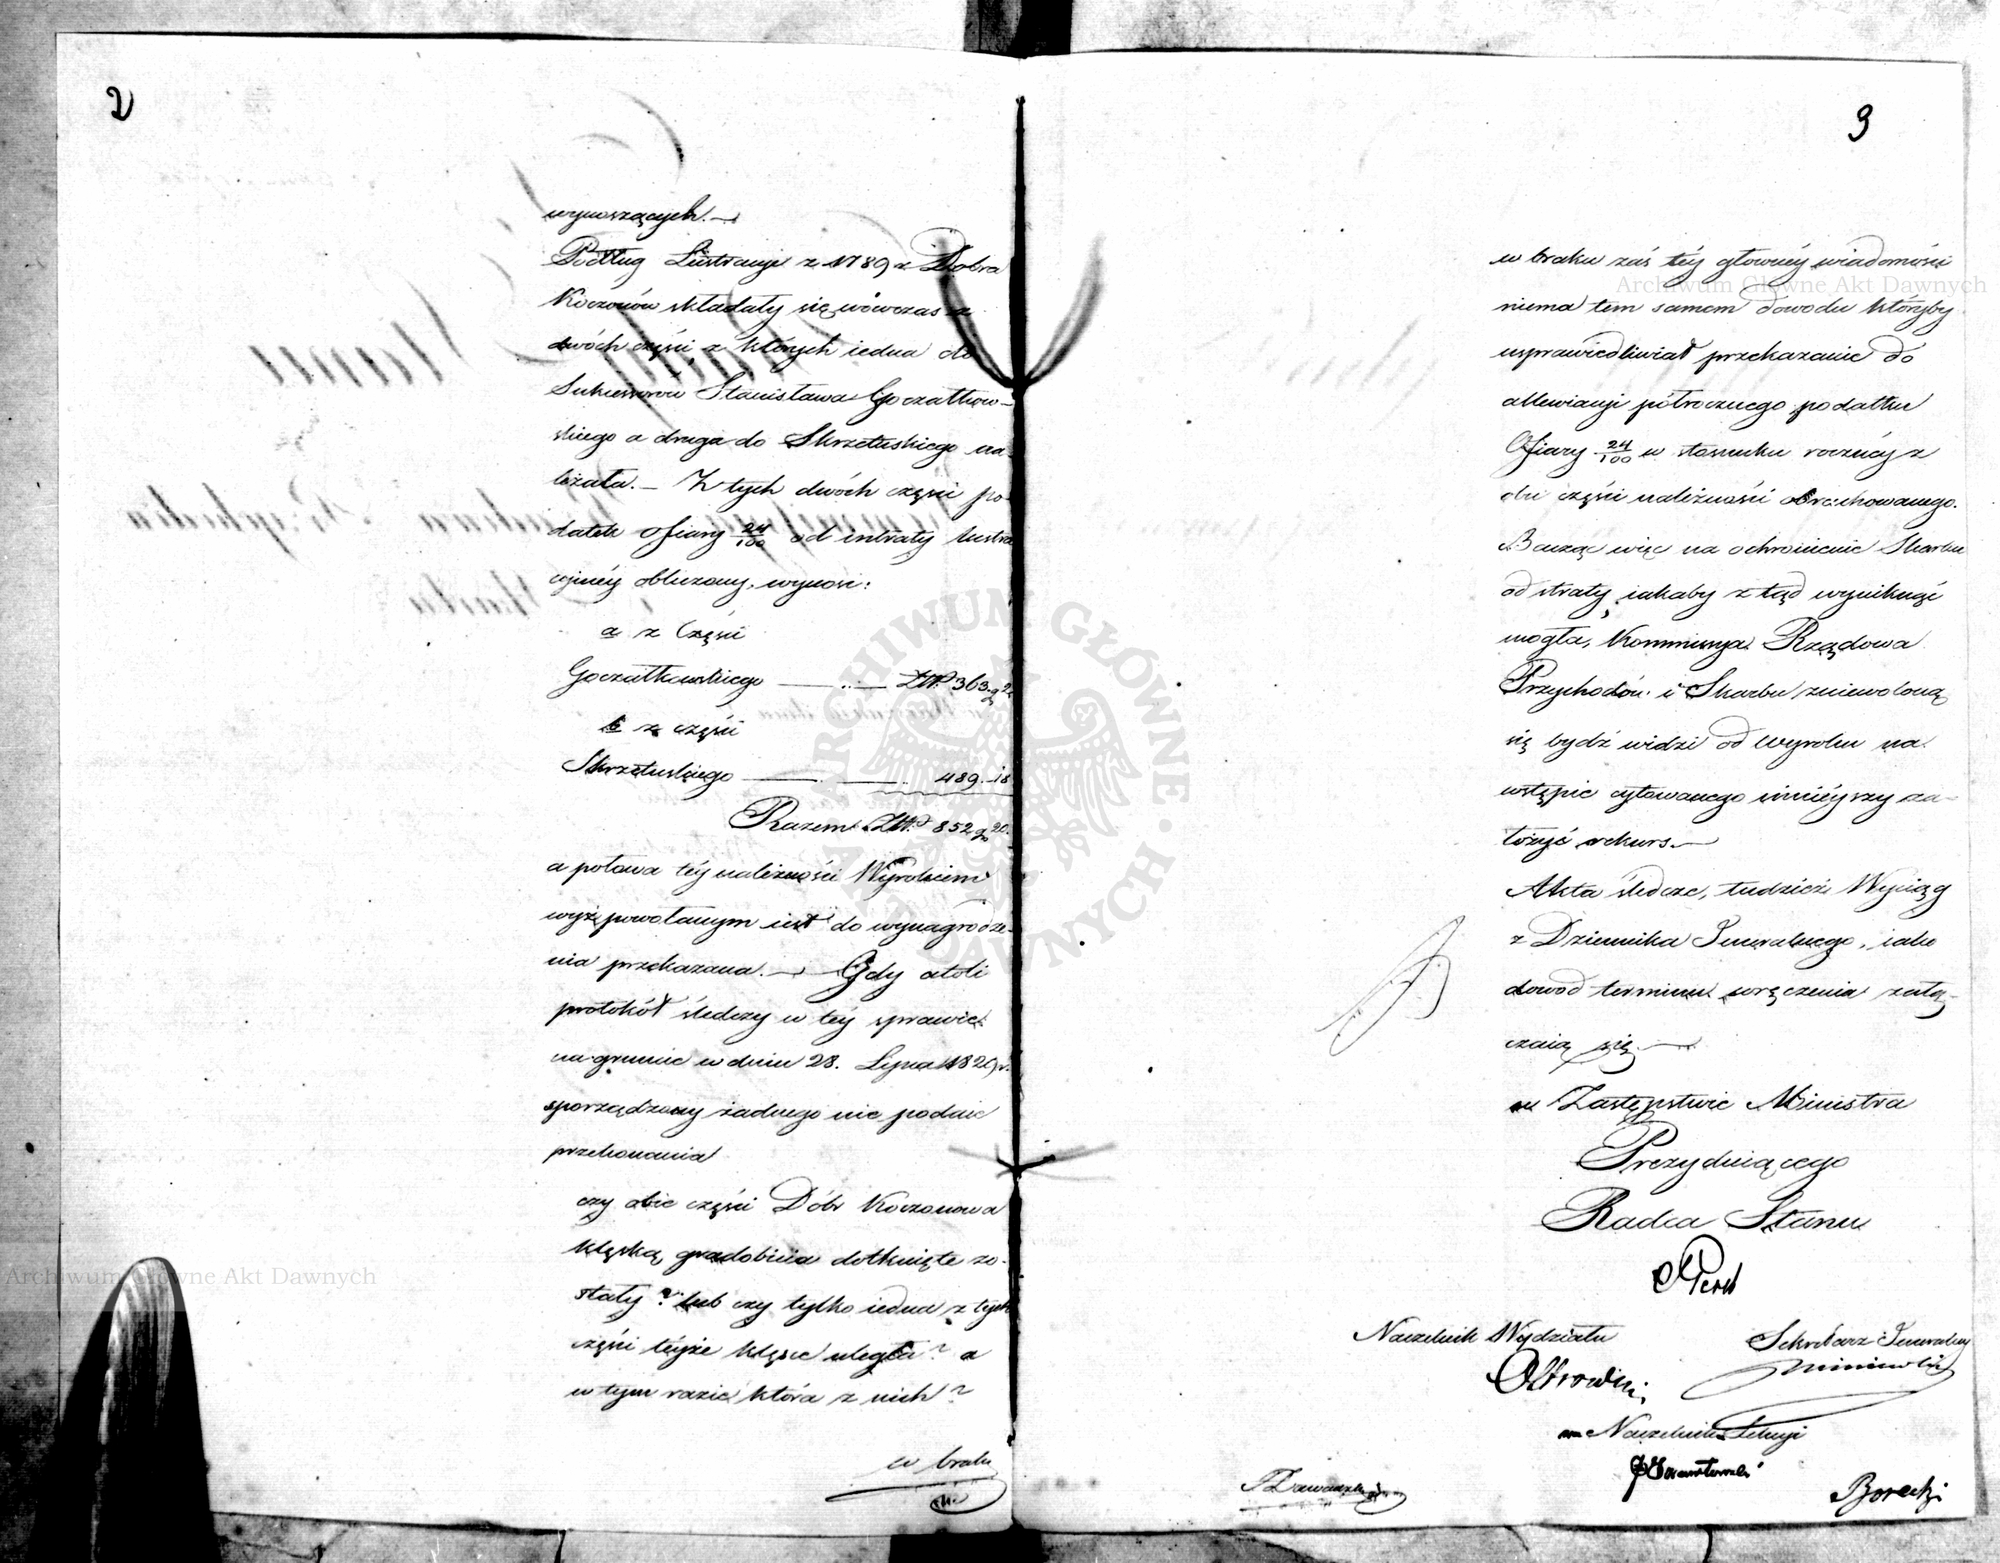 2
wynoszących.—
Podług Lustracyi z 1789 r. Dobra
Koczonów składały się wówczas z
dwóch części, z których iedna do
Sukcessorów Stanisława Goczałkow-
skiego a druga do Skrzetuskiego na-
leżała.— Z tych dwóch części po-
datek ofiary 24/100 od intraty lustra
cyinéy obliczony, wynosi:
a z Części
Goczałkowskiego ——— Złp. 363. g 2
b z części
Skrzetuskiego ——— 489. 18
Razem Złp. 852 g 20.
a połowa téy należności Wyrokiem
wyżé powołanym iest do wynagrodze-
nia przekazana.— Gdy atoli
protokół śledczy w téy sprawie
na gruncie w dniu 28. Lipca 1829 r.
sporządzony żadnego nie podaie
przekonania
czy obie części Dóbr Koczonowa
klęską gradobicia dotknięte zo-
stały? lub czy tylko iedna z tych
części téyże klęsce uległa? a
w tym razie która z nich?
w braku
3
w braku zaś téy głównéy wiadomości
niema tem samem dowodu któryby
usprawiedliwiał przekazanie do
allewiacyi półrocznego podatku
Ofiary 24/100 w stosunku rocznéy z
obu części należności obrachowanego.
Bacząc więc na ochronienie Skarbu
od straty, iakaby z tąd wyniknąć
mogła, Kommissya Rządowa
Przychodów i Skarbu zniewoloną
się bydź widzi od Wyroku na
wstępie cytowanego ninieyszy za-
łożyć rekurs.—
Akta śledcze, tudzież Wyciąg
z Dziennika Jeneralnego, iako
dowod terminu wręczenia załą-
czaią się.—
w Zastępstwie Ministra
Prezyduiącego
Radca Stanu
Naczelnik Wydziału
Sekretarz Jeneralny
Naczelnik Sekcyi
Borecki
Archiwum Główne Akt Dawnych
Archiwum Główne Akt Dawnych
ARCHIWUM GŁÓWNE AKT DAWNYCH